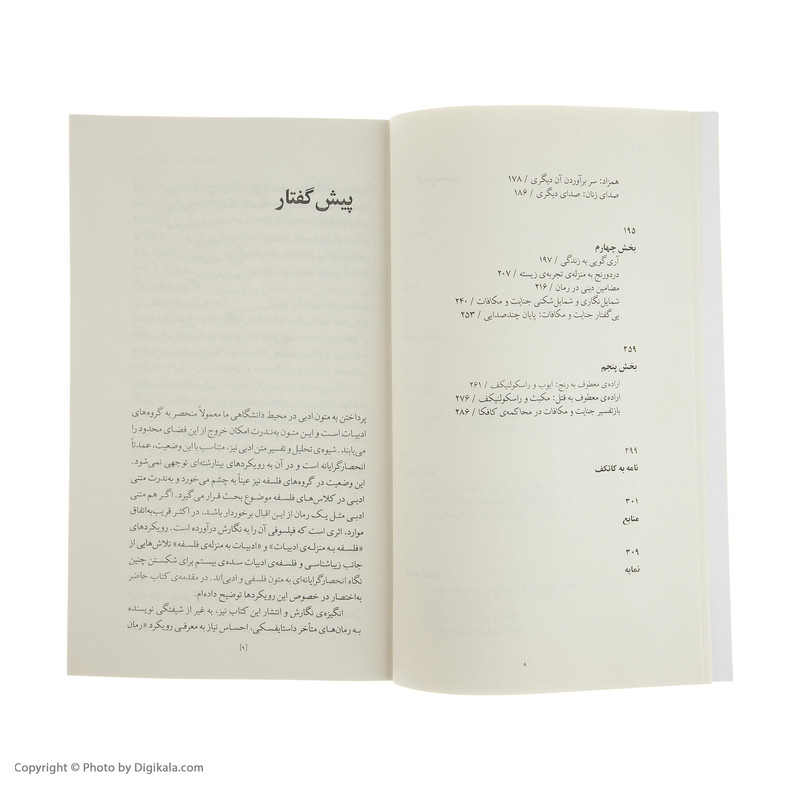 همزاد: سر برآوردن آن دیگری / ۱۷۸
صدای زنان: صدای دیگری / ۱۸۶
۱۹۵
بخش چهارم
آری‌گویی به زندگی / ۱۹۷
دردورنج به منزله‌ی تجربه‌ی زیسته / ۲۰۷
مضامین دینی در رمان / ۲۱۶
شمایل‌نگاری و شمایل‌شکنی جنایت و مکافات / ۲۴۰
پی‌گفتار جنایت و مکافات: پایان چندصدایی / ۲۵۳
۲۵۹
بخش پنجم
اراده‌ی معطوف به رنج: ایوب و راسکولنیکف / ۲۶۱
اراده‌ی معطوف به قتل: مکبث و راسکولنیکف / ۲۷۶
بازتفسیر جنایت و مکافات در محاکمه‌ی کافکا / ۲۸۶
۲۹۹
نامه به کاتکف
۳۰۱
منابع
۳۰۹
نمایه
۸
پیش گفتار
پرداختن به متون ادبی در محیط دانشگاهی ما معمولاً منحصر به گروه‌های
ادبیات است و این متون به‌ندرت امکان خروج از این فضای محدود را
می‌یابند. شیوه‌ی تحلیل و تفسیر متن ادبی نیز، متناسب با این وضعیت، عمدتاً
انحصارگرایانه است و در آن به رویکردهای بینارشته‌ای توجهی نمی‌شود.
این وضعیت در گروه‌های فلسفه نیز عیناً به چشم می‌خورد و به‌ندرت متنی
ادبی در کلاس‌های فلسفه موضوع بحث قرار می‌گیرد. اگر هم متنی
ادبی مثل یک رمان از این اقبال برخوردار باشد، در اکثر قریب‌به‌اتفاق
موارد، اثری است که فیلسوفی آن را به نگارش درآورده است. رویکردهای
«فلسفه به منزله‌ی ادبیات» و «ادبیات به منزله‌ی فلسفه» تلاش‌هایی از
جانب زیباشناسی و فلسفه‌ی ادبیات سده‌ی بیستم برای شکستن چنین
نگاه انحصارگرایانه‌ای به متون فلسفی و ادبی‌اند. در مقدمه‌ی کتاب حاضر
به‌اختصار در خصوص این رویکردها توضیح داده‌ام.
انگیزه‌ی نگارش و انتشار این کتاب نیز، به غیر از شیفتگی نویسنده
به رمان‌های متأخر داستایفسکی، احساس نیاز به معرفی رویکرد «رمان
[۹]
Copyright © Photo by Digikala.com